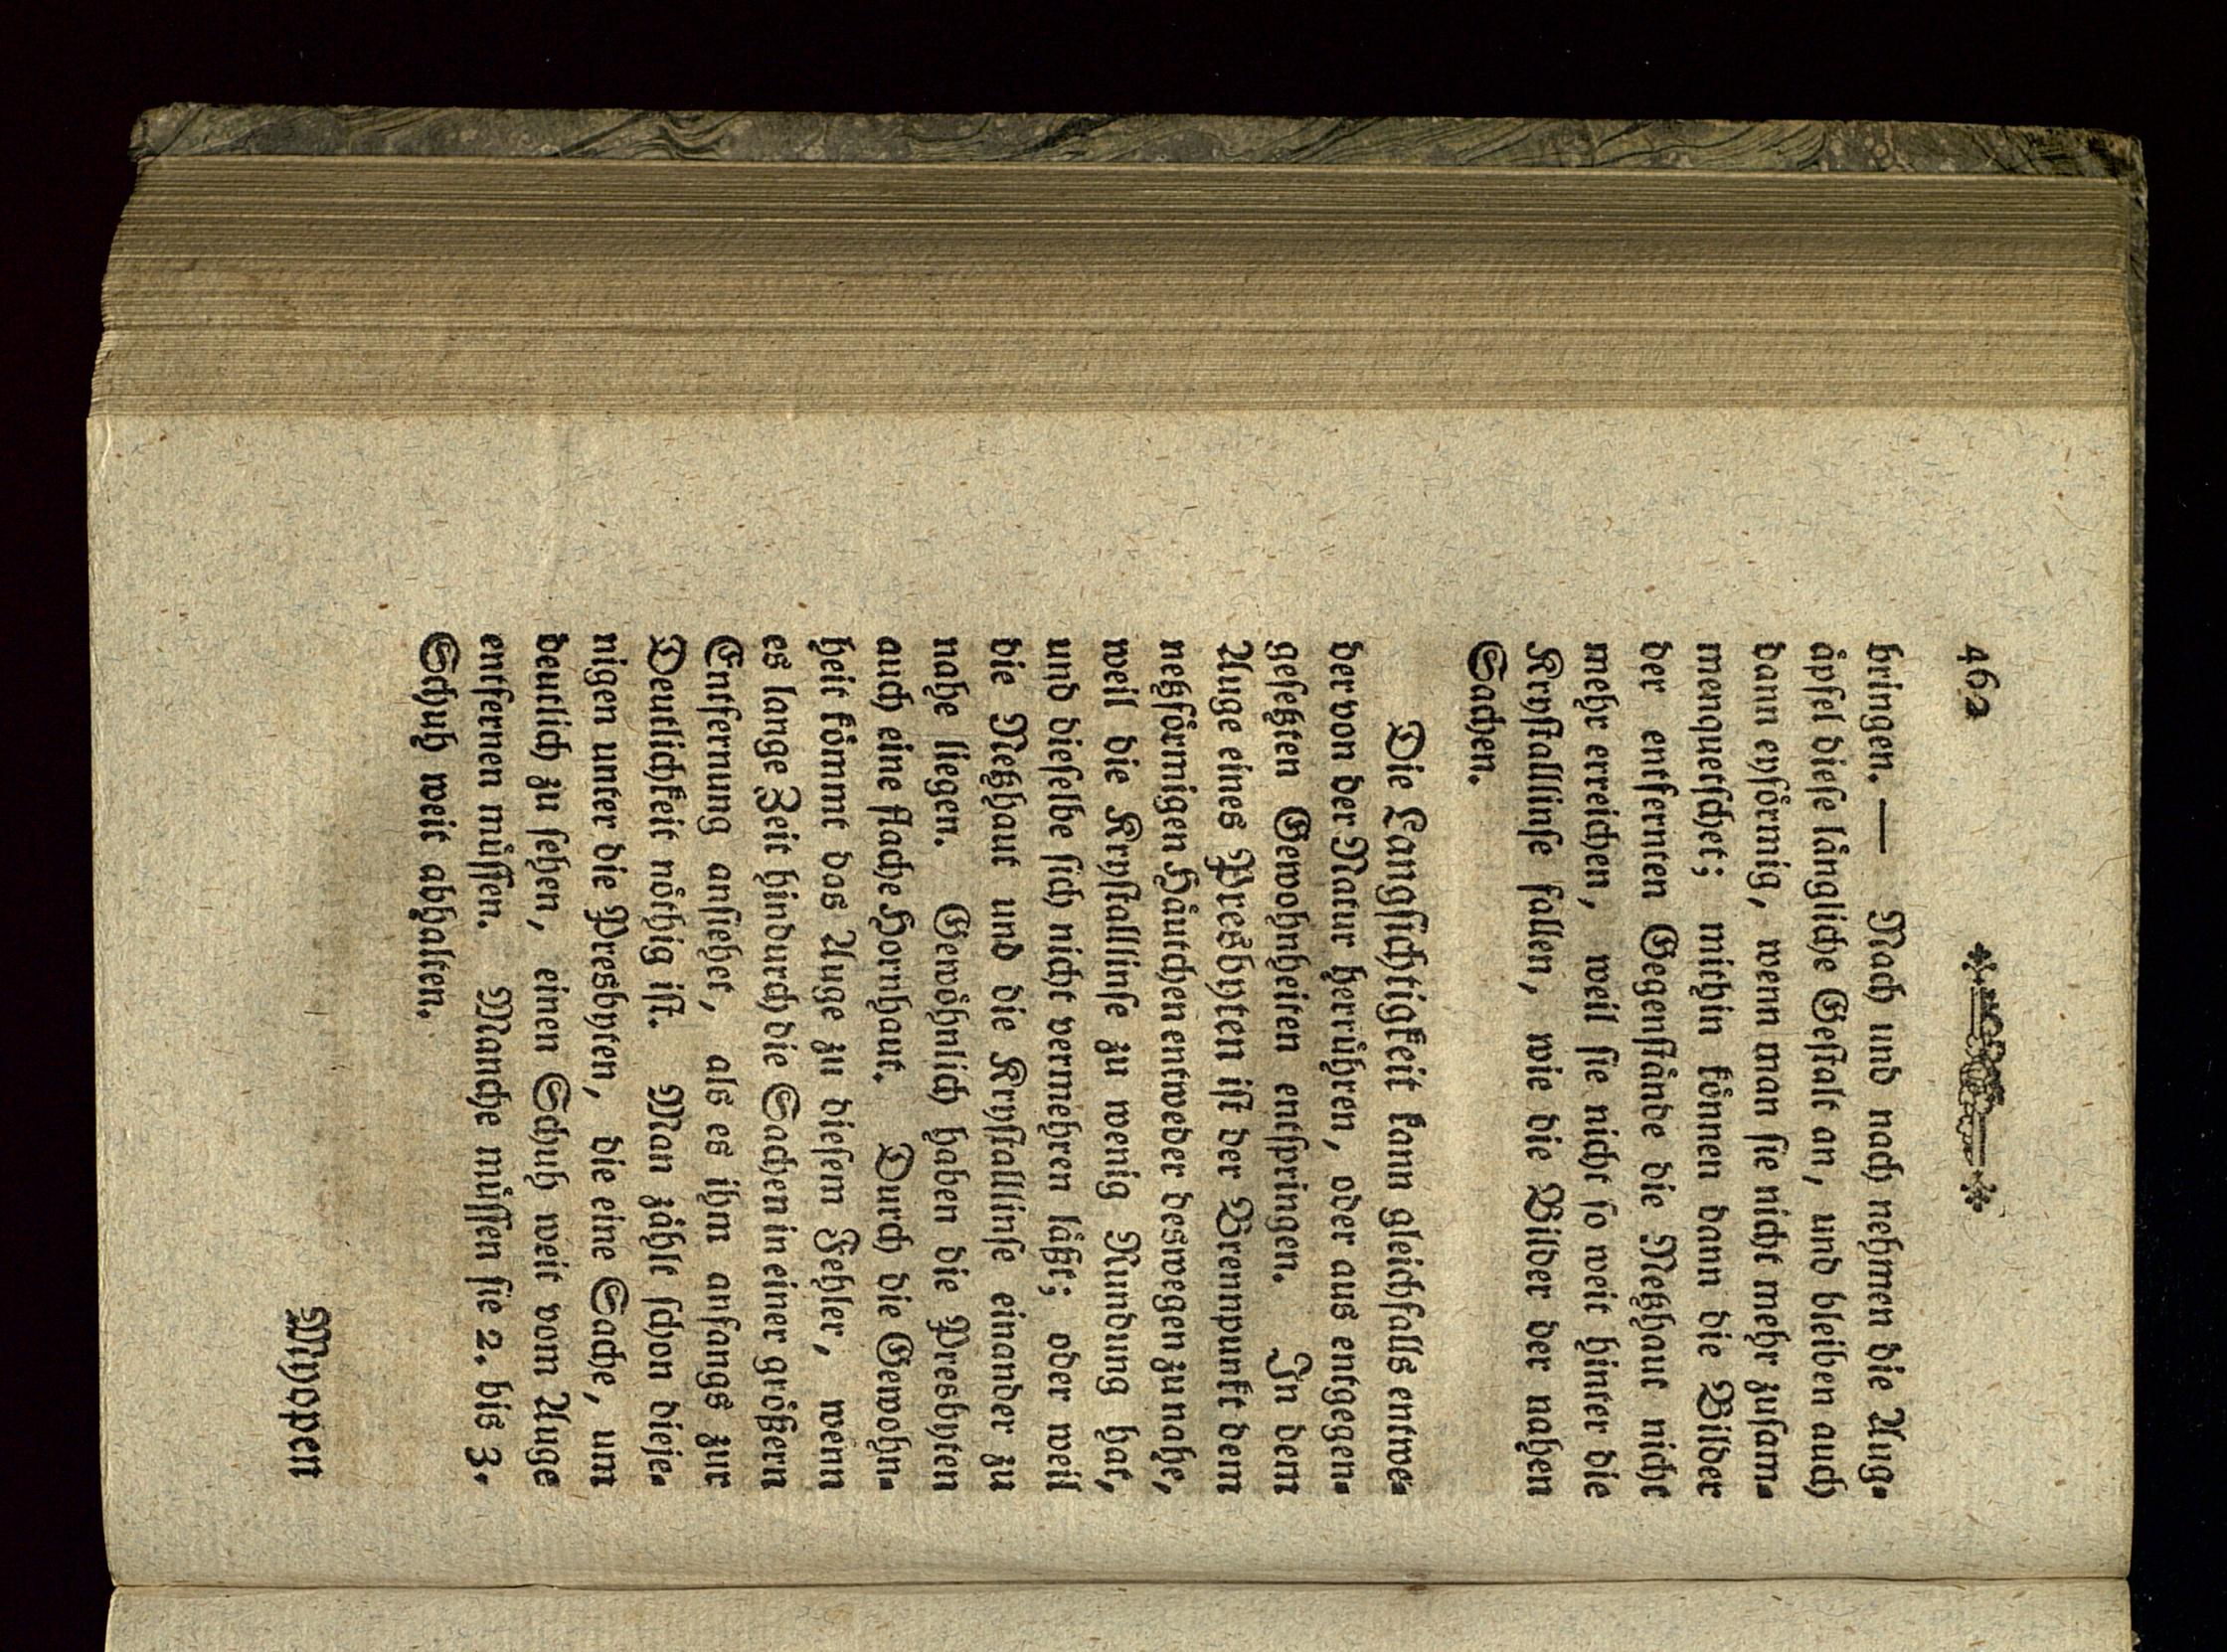 462
bringen. — Nach und nach nehmen die Aug⸗
äpfel dieſe längliche Geſtalt an, und bleiben auch
dann eyförmig, wenn man ſie nicht mehr zuſam⸗
menquetſchet; mithin können dann die Bilder
der entfernten Gegenſtände die Netzhaut nicht
mehr erreichen, weil ſie nicht ſo weit hinter die
Kryſtalllinſe fallen, wie die Bilder der nahen
Sachen.
Die Langſichtigkeit kann gleichfalls entwe⸗
der von der Natur herrühren, oder aus entgegen⸗
geſetzten Gewohnheiten entſpringen. In dem
Auge eines Preßbyten iſt der Brennpunkt dem
netzförmigen Häutchen entweder deswegen zu nahe,
weil die Kryſtalllinſe zu wenig Rundung hat,
und dieſelbe ſich nicht vermehren läßt; oder weil
die Netzhaut und die Kryſtalllinſe einander zu
nahe liegen. Gewöhnlich haben die Presbyten
auch eine flache Hornhaut. Durch die Gewohn⸗
heit kömmt das Auge zu dieſem Fehler, wenn
es lange Zeit hindurch die Sachen in einer größern
Entfernung anſiehet, als es ihm anfangs zur
Deutlichkeit nöthig iſt. Man zählt ſchon dieje⸗
nigen unter die Presbyten, die eine Sache, um
deutlich zu ſehen, einen Schuh weit vom Auge
entfernen müſſen. Manche müſſen ſie 2. bis 3.
Schuh weit abhalten.
Myopen